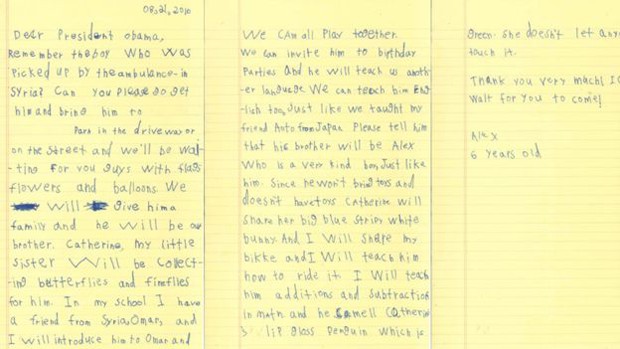 08,21,2016
Dear President obama,
Remember the boy who was
picked up by the ambulance in
Syria? Can you please go get
him and bring him to
Park in the driveway or
on the street and we'll be wai-
ting for you guys with flags
flowers and balloons. We
will give him a
family and he will be our
brother. Catherine, my little
sister will be collect-
ing butterflies and fireflies
for him. In my school I have
a friend from Syria, Omar, and
I will introduce him to Omar and
We can all play together.
We can invite him to birthday
parties and he will teach us anoth-
er language. We can teach him eng-
lish too, Just like we taught my
friend Auto from Japan Please tell him
that his brother will be Alex
who is a very kind boy, Just like
him. Since he won't bring toys and
doesn't have toys Catherine will
share her big blue stripy white
bunny. And I will share my
bikke and I will teach him
how to ride it. I will teach
him additions and subtractions
in math. and he smell Catherine
's lip gloss penguin which is
green. She doesn't let any
touch it.
Thank you very mach! I c
wait for you to come!
Alex
6 years old